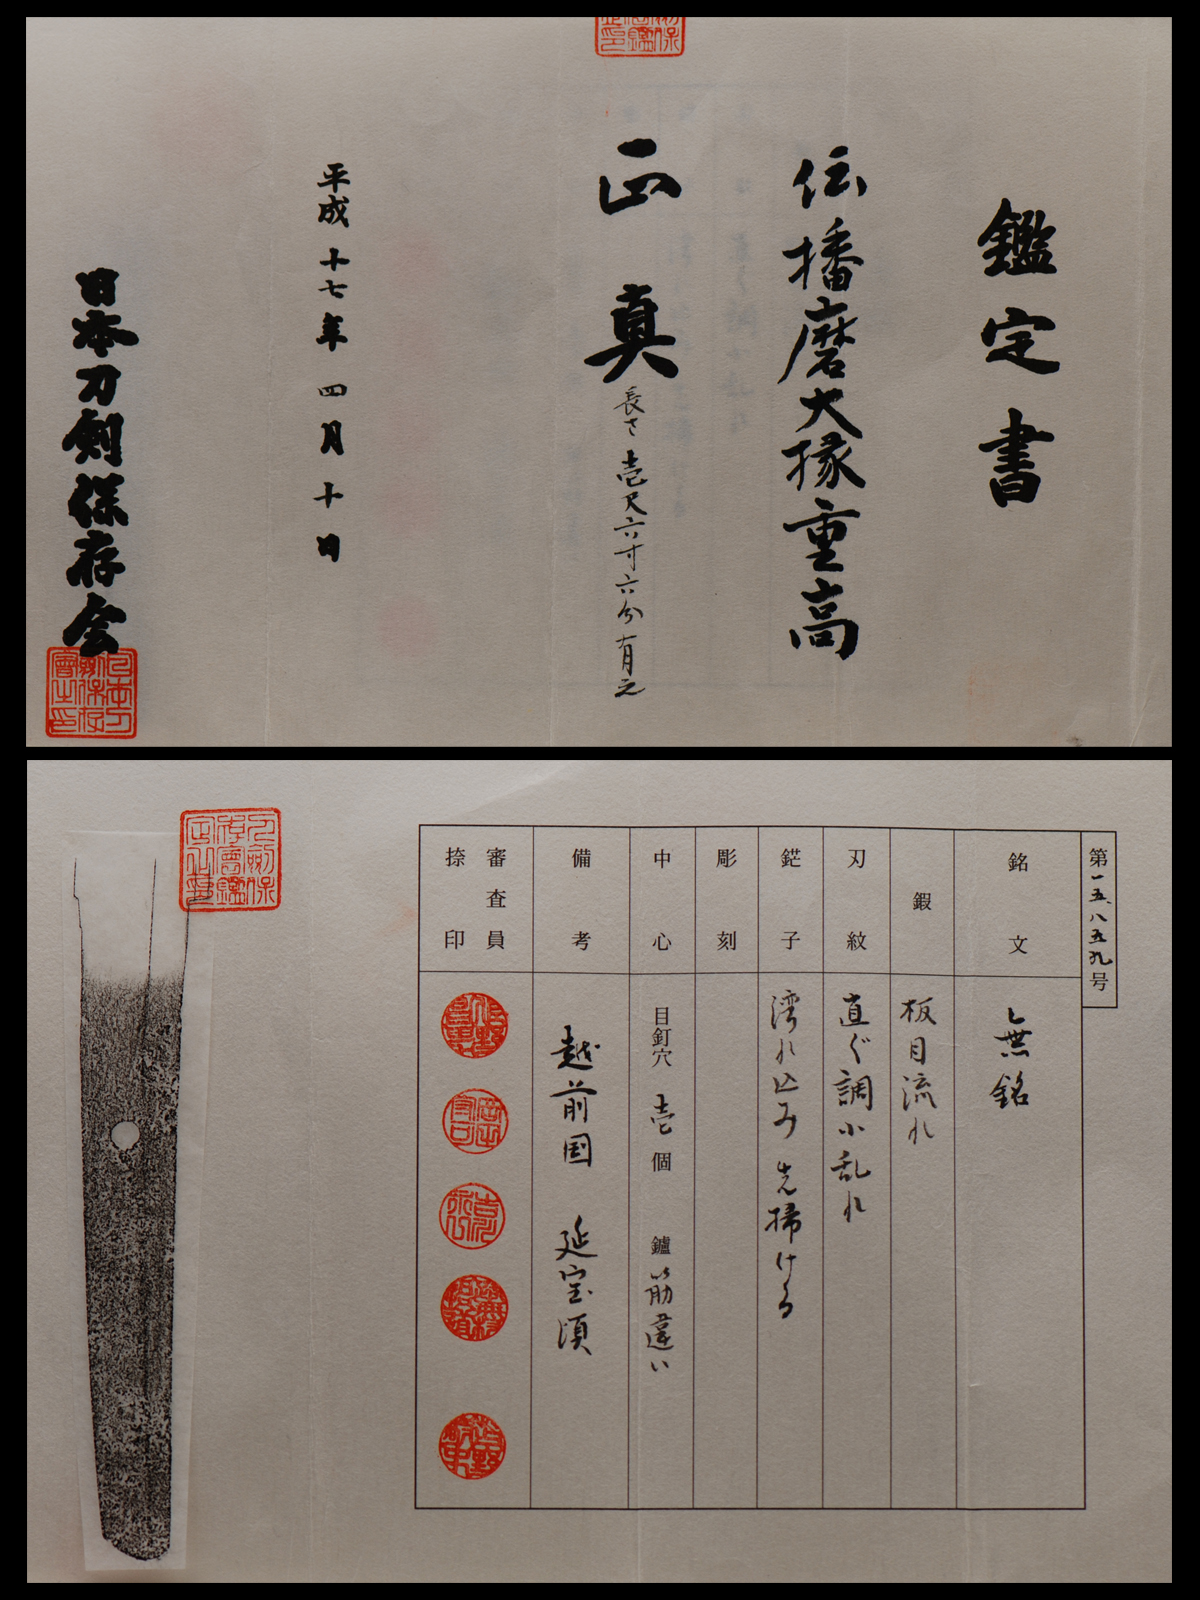 鑑定書
伝播磨大掾重高
正真
長さ壱尺六寸六分有之
平成十七年四月十日
日本刀剣保存会
第一五、八五九号
銘文
無銘
鍜
板目流れ
刃紋
直ぐ調小乱れ
鋩子
湾れ込み 先掃ける
彫刻
中心
目釘穴 壱個 鑢 筋違い
備考
越前国 延宝頃
審査員
捺印